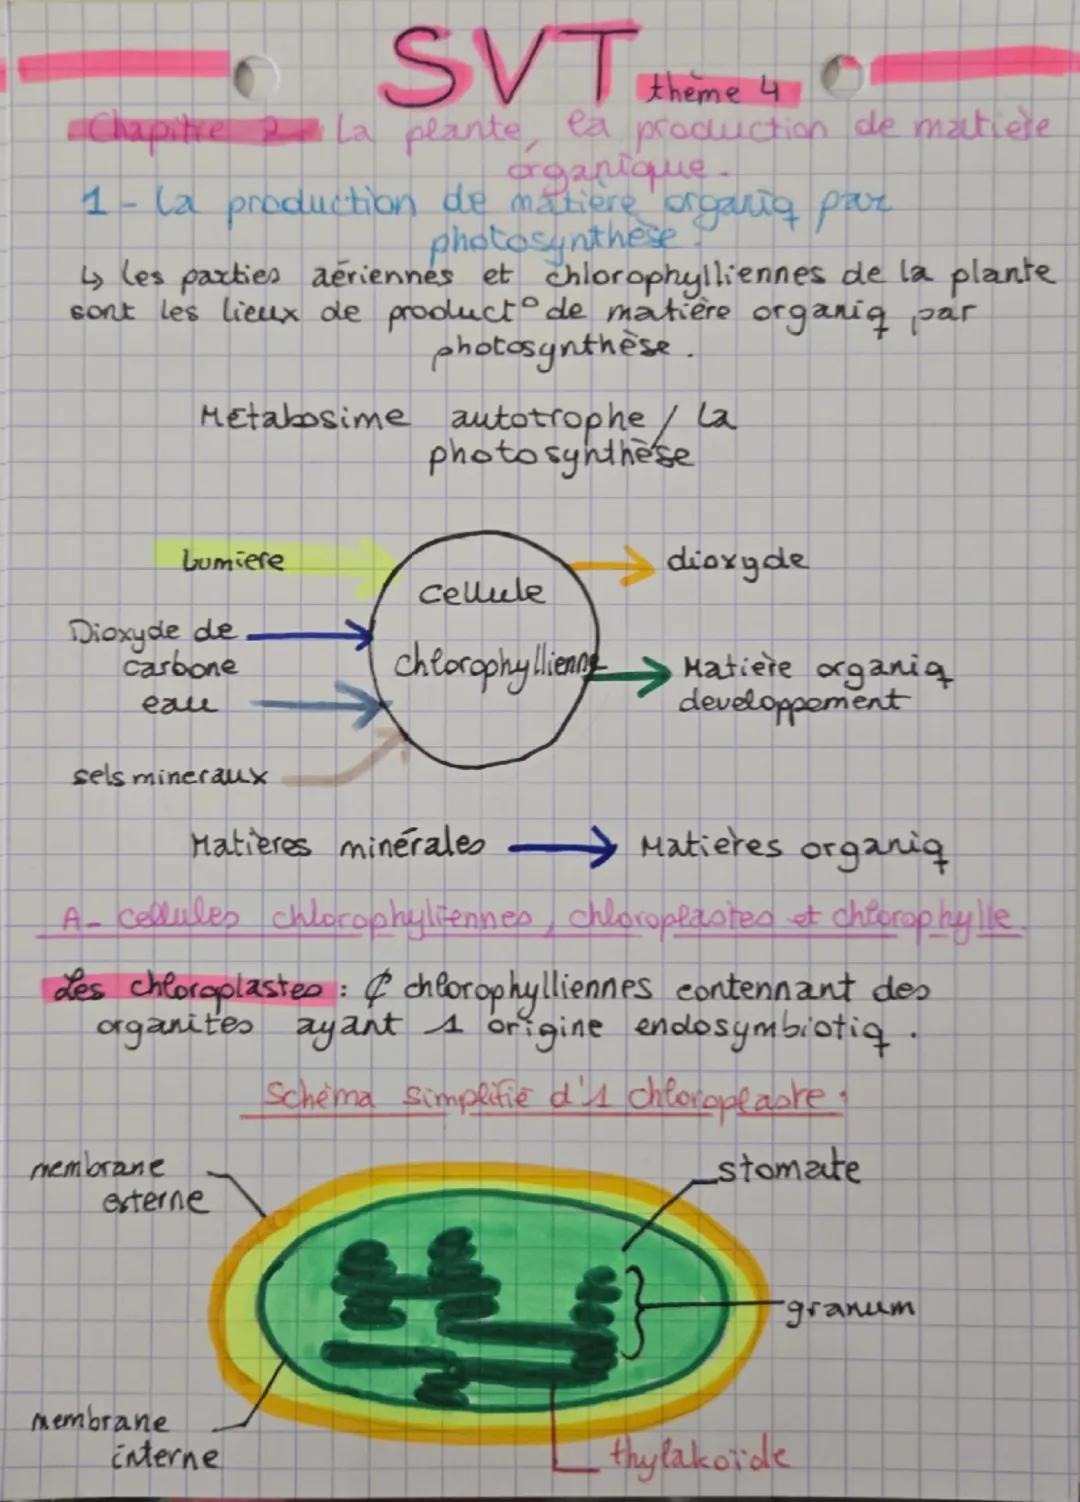 SVT
thème 4
Chapitre 2 - La plante, la production de matière
organique.
1 - La production de matière organiq par
photosynthèse :
↳ les parties aériennes et chlorophylliennes de la plante
sont les lieux de product° de matière organiq par
photosynthèse.
Métabosime autotrophe / la
photosynthèse
Lumiere
dioxyde
cellule
chlorophyllienne
Dioxyde de
carbone
eau
Matière organiq
developpement
sels mineraux
Matières minérales → Matières organiq
A- cellules chlorophylliennes, chloroplastes et chlorophylle.
Les chloroplastes : ₵ chlorophylliennes contennant des
organites ayant 1 origine endosymbiotiq.
Schéma simplifié d'1 chloroplaste :
membrane
esterne
stomate
granum
membrane
interne
thylakoïde